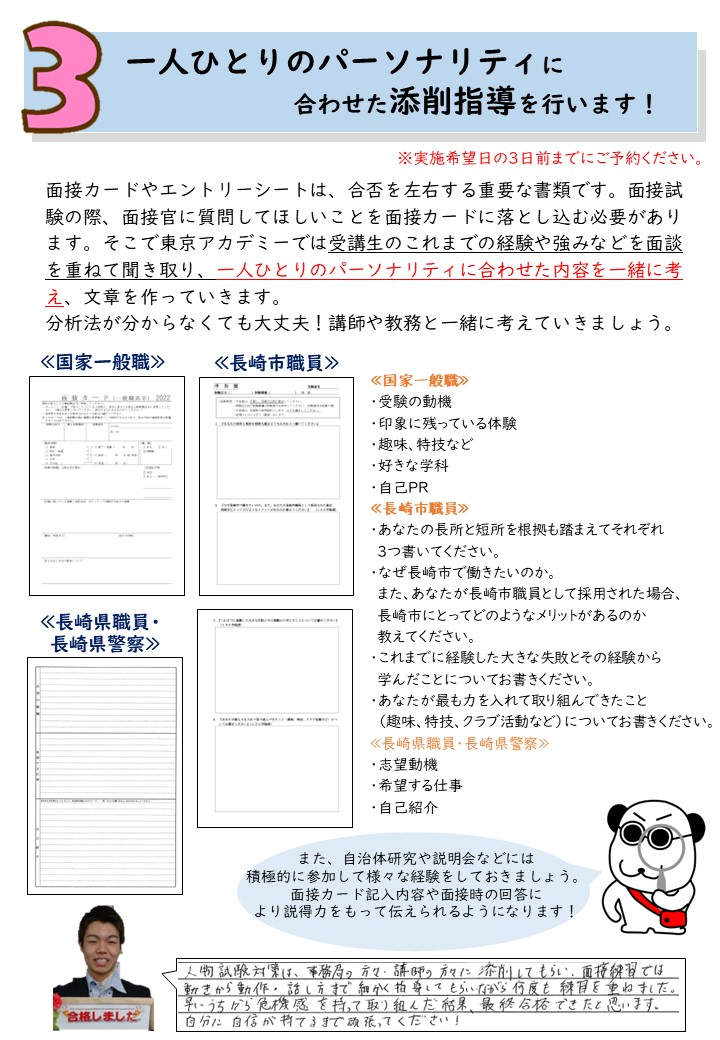 3
一人ひとりのパーソナリティに
合わせた添削指導を行います！
※実施希望日の3日前までにご予約ください。
面接カードやエントリーシートは、合否を左右する重要な書類です。面接試
験の際、面接官に質問してほしいことを面接カードに落とし込む必要があり
ます。そこで東京アカデミーでは受講生のこれまでの経験や強みなどを面談
を重ねて聞き取り、一人ひとりのパーソナリティに合わせた内容を一緒に考
え、文章を作っていきます。
分析法が分からなくても大丈夫！講師や教務と一緒に考えていきましょう。
≪国家一般職≫
面接カード（一般職高卒） 2022
≪長崎市職員≫
≪長崎県職員・
長崎県警察≫
≪国家一般職≫
・受験の動機
・印象に残っている体験
・趣味、特技など
・好きな学科
・自己PR
≪長崎市職員≫
・あなたの長所と短所を根拠も踏まえてそれぞれ
3つ書いてください。
・なぜ長崎市で働きたいのか。
また、あなたが長崎市職員として採用された場合、
長崎市にとってどのようなメリットがあるのか
教えてください。
・これまでに経験した大きな失敗とその経験から
学んだことについてお書きください。
・あなたが最も力を入れて取り組んできたこと
（趣味、特技、クラブ活動など）についてお書きください。
≪長崎県職員・長崎県警察≫
・志望動機
・希望する仕事
・自己紹介
また、自治体研究や説明会などには
積極的に参加して様々な経験をしておきましょう。
面接カード記入内容や面接時の回答に
より説得力をもって伝えられるようになります！
合格しました
人物試験対策は、事務局の方々・講師の方々に添削してもらい、面接練習では
動きから動作・話し方まで細かく指導してもらいながら何度も練習を重ねました。
早いうちから危機感を持って取り組んだ結果、最終合格できたと思います。
自分に自信が持てるまで頑張ってください！